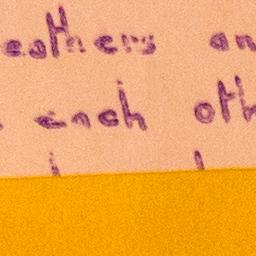 eathers an
each oth